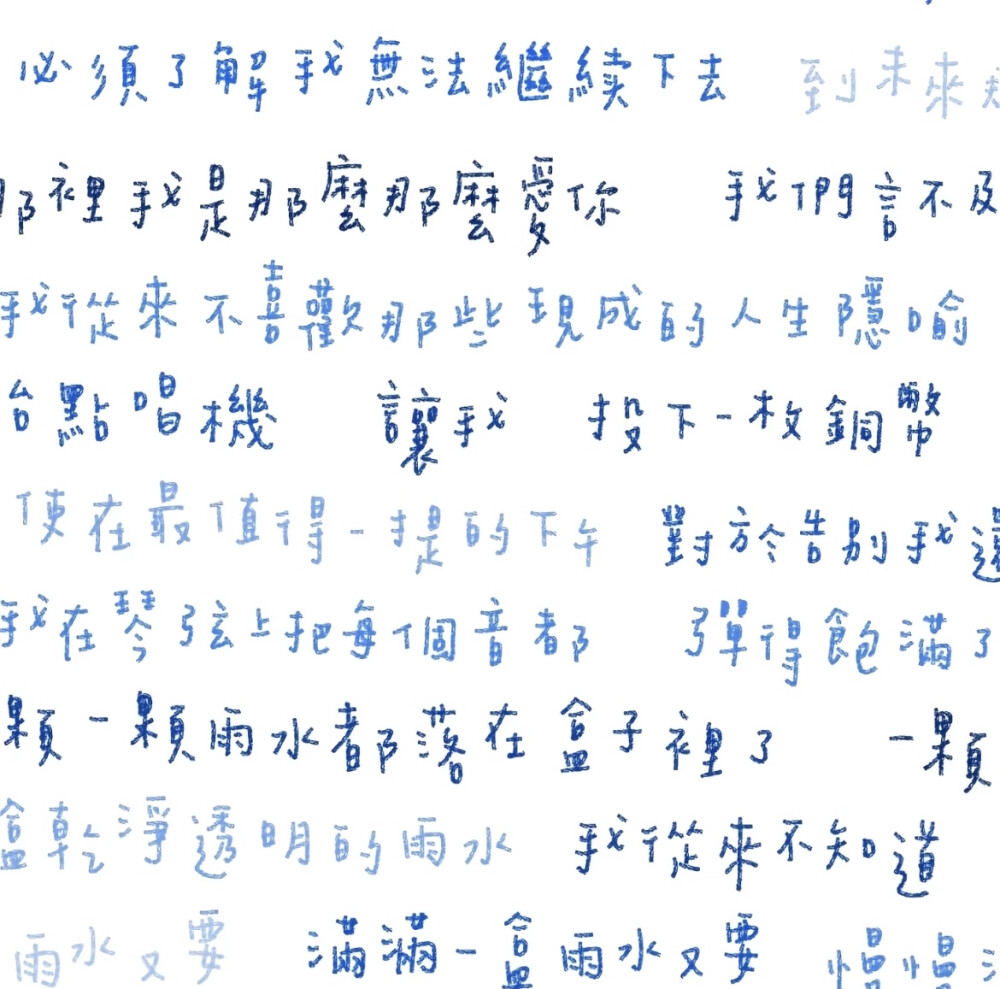 必須了解我無法繼續下去 到未來
那裡我是那麼那麼愛你 我們言不及
我從來不喜歡那些現成的人生隱喻
台點唱機 讓我 投下一枚銅幣
使在最值得一提的下午 對於告別我還
我在琴弦上把每個音都 彈得飽滿了
顆一顆雨水都落在盒子裡了 一顆
盒乾淨透明的雨水 我從來不知道
雨水又要 滿滿一盒雨水又要 慢慢